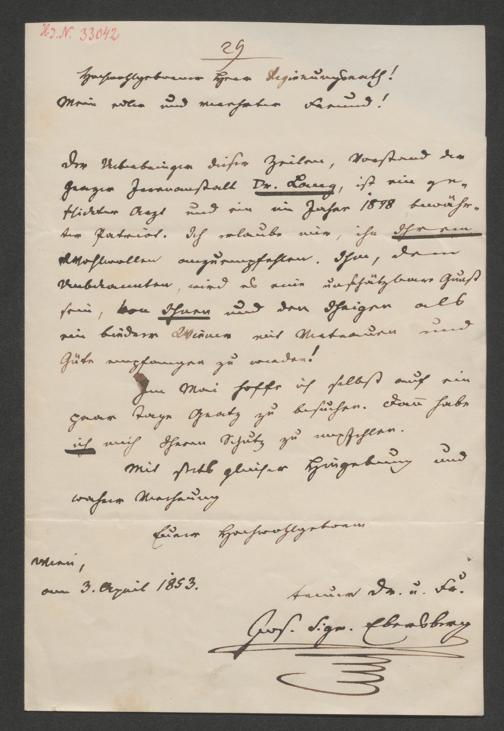 H.I.N. 33042
29
Hochwohlgeborener Herr Regierungsrath!
Mein edler und verehrter Freund!
Der Ueberbringer dieser Zeilen, Vorstand der
Grazer Irrenanstalt Dr. Lang, ist ein ge-
Arzt und ein im Jahre 1848 bewähr-
ter Patriot. Ich erlaube mir, ihn Ihrem
Wohlwollen anzuempfehlen. Ihm, dem
Unbekannten, wird es eine unschätzbare Gunst
sein, von Ihnen und den Ihrigen als
ein biederer Wiener mit Vertrauen und
Güte empfangen zu werden!
Im Mai hoffe ich selbst auf ein
paar Tage Gratz zu besuchen. Dann habe
ich mich Ihrem Schutz zu empfehlen.
Mit stets gleicher Hingebung und
wahrer Verehrung
Euer Hochwohlgeboren
Wien,
am 3. April 1853.
treuer Dr. u. Fr.
Jos. Sigm. Ebersberg